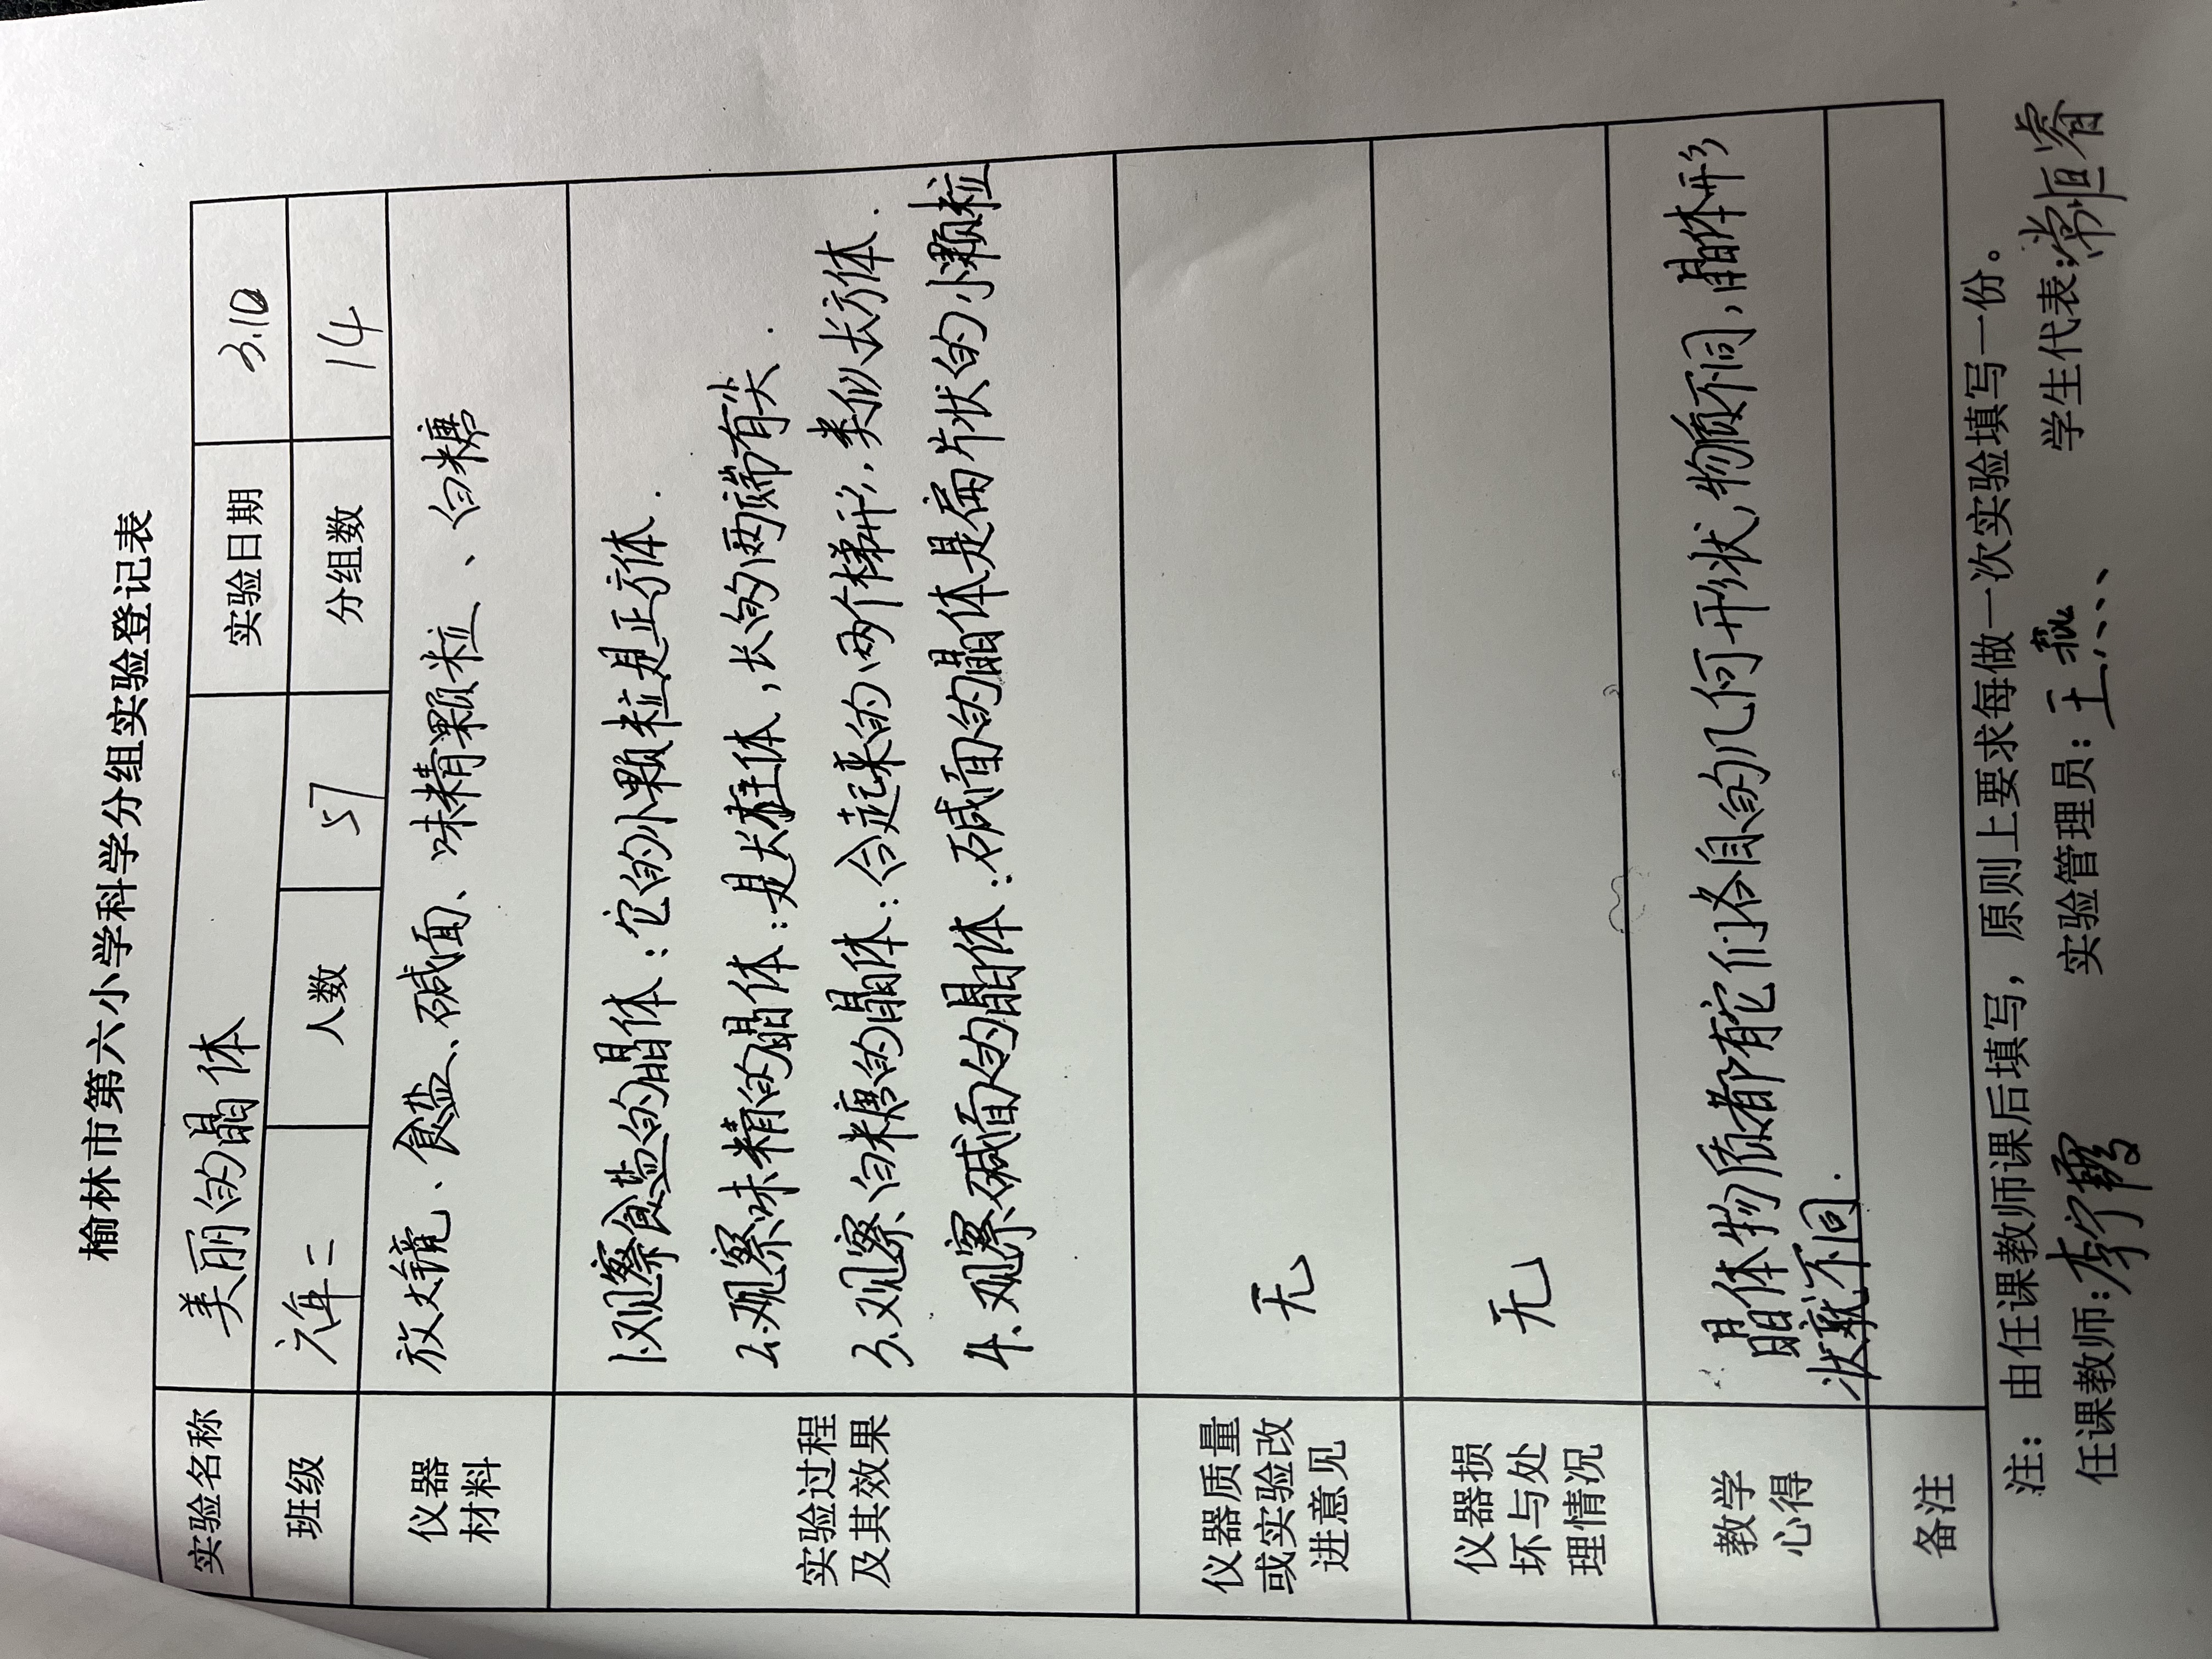 榆林市第六小学科学分组实验登记表
实验名称 美丽的晶体 实验日期 3.10
班级 六年二 人数 57 分组数 14
仪器
材料
放大镜、食盐、碱面、味精颗粒、白糖
实验过程
及其效果
1.观察食盐的晶体:它的小颗粒是正方体.
2.观察味精的晶体:是长柱体,长的两端有尖.
3.观察白糖的晶体:合起来的两个梯形,类似长方体.
4.观察碱面的晶体:碱面的晶体是扁片状的小颗粒
仪器质量
或实验改
进意见
无
仪器损
坏与处
理情况
无
教学
心得
晶体物质都有它们各自的几何形状,物质不同,晶体形
状就不同.
备注
注:由任课教师课后填写,原则上要求每做一次实验填写一份。
任课教师:李霞 实验管理员:王燕 学生代表:常恒睿